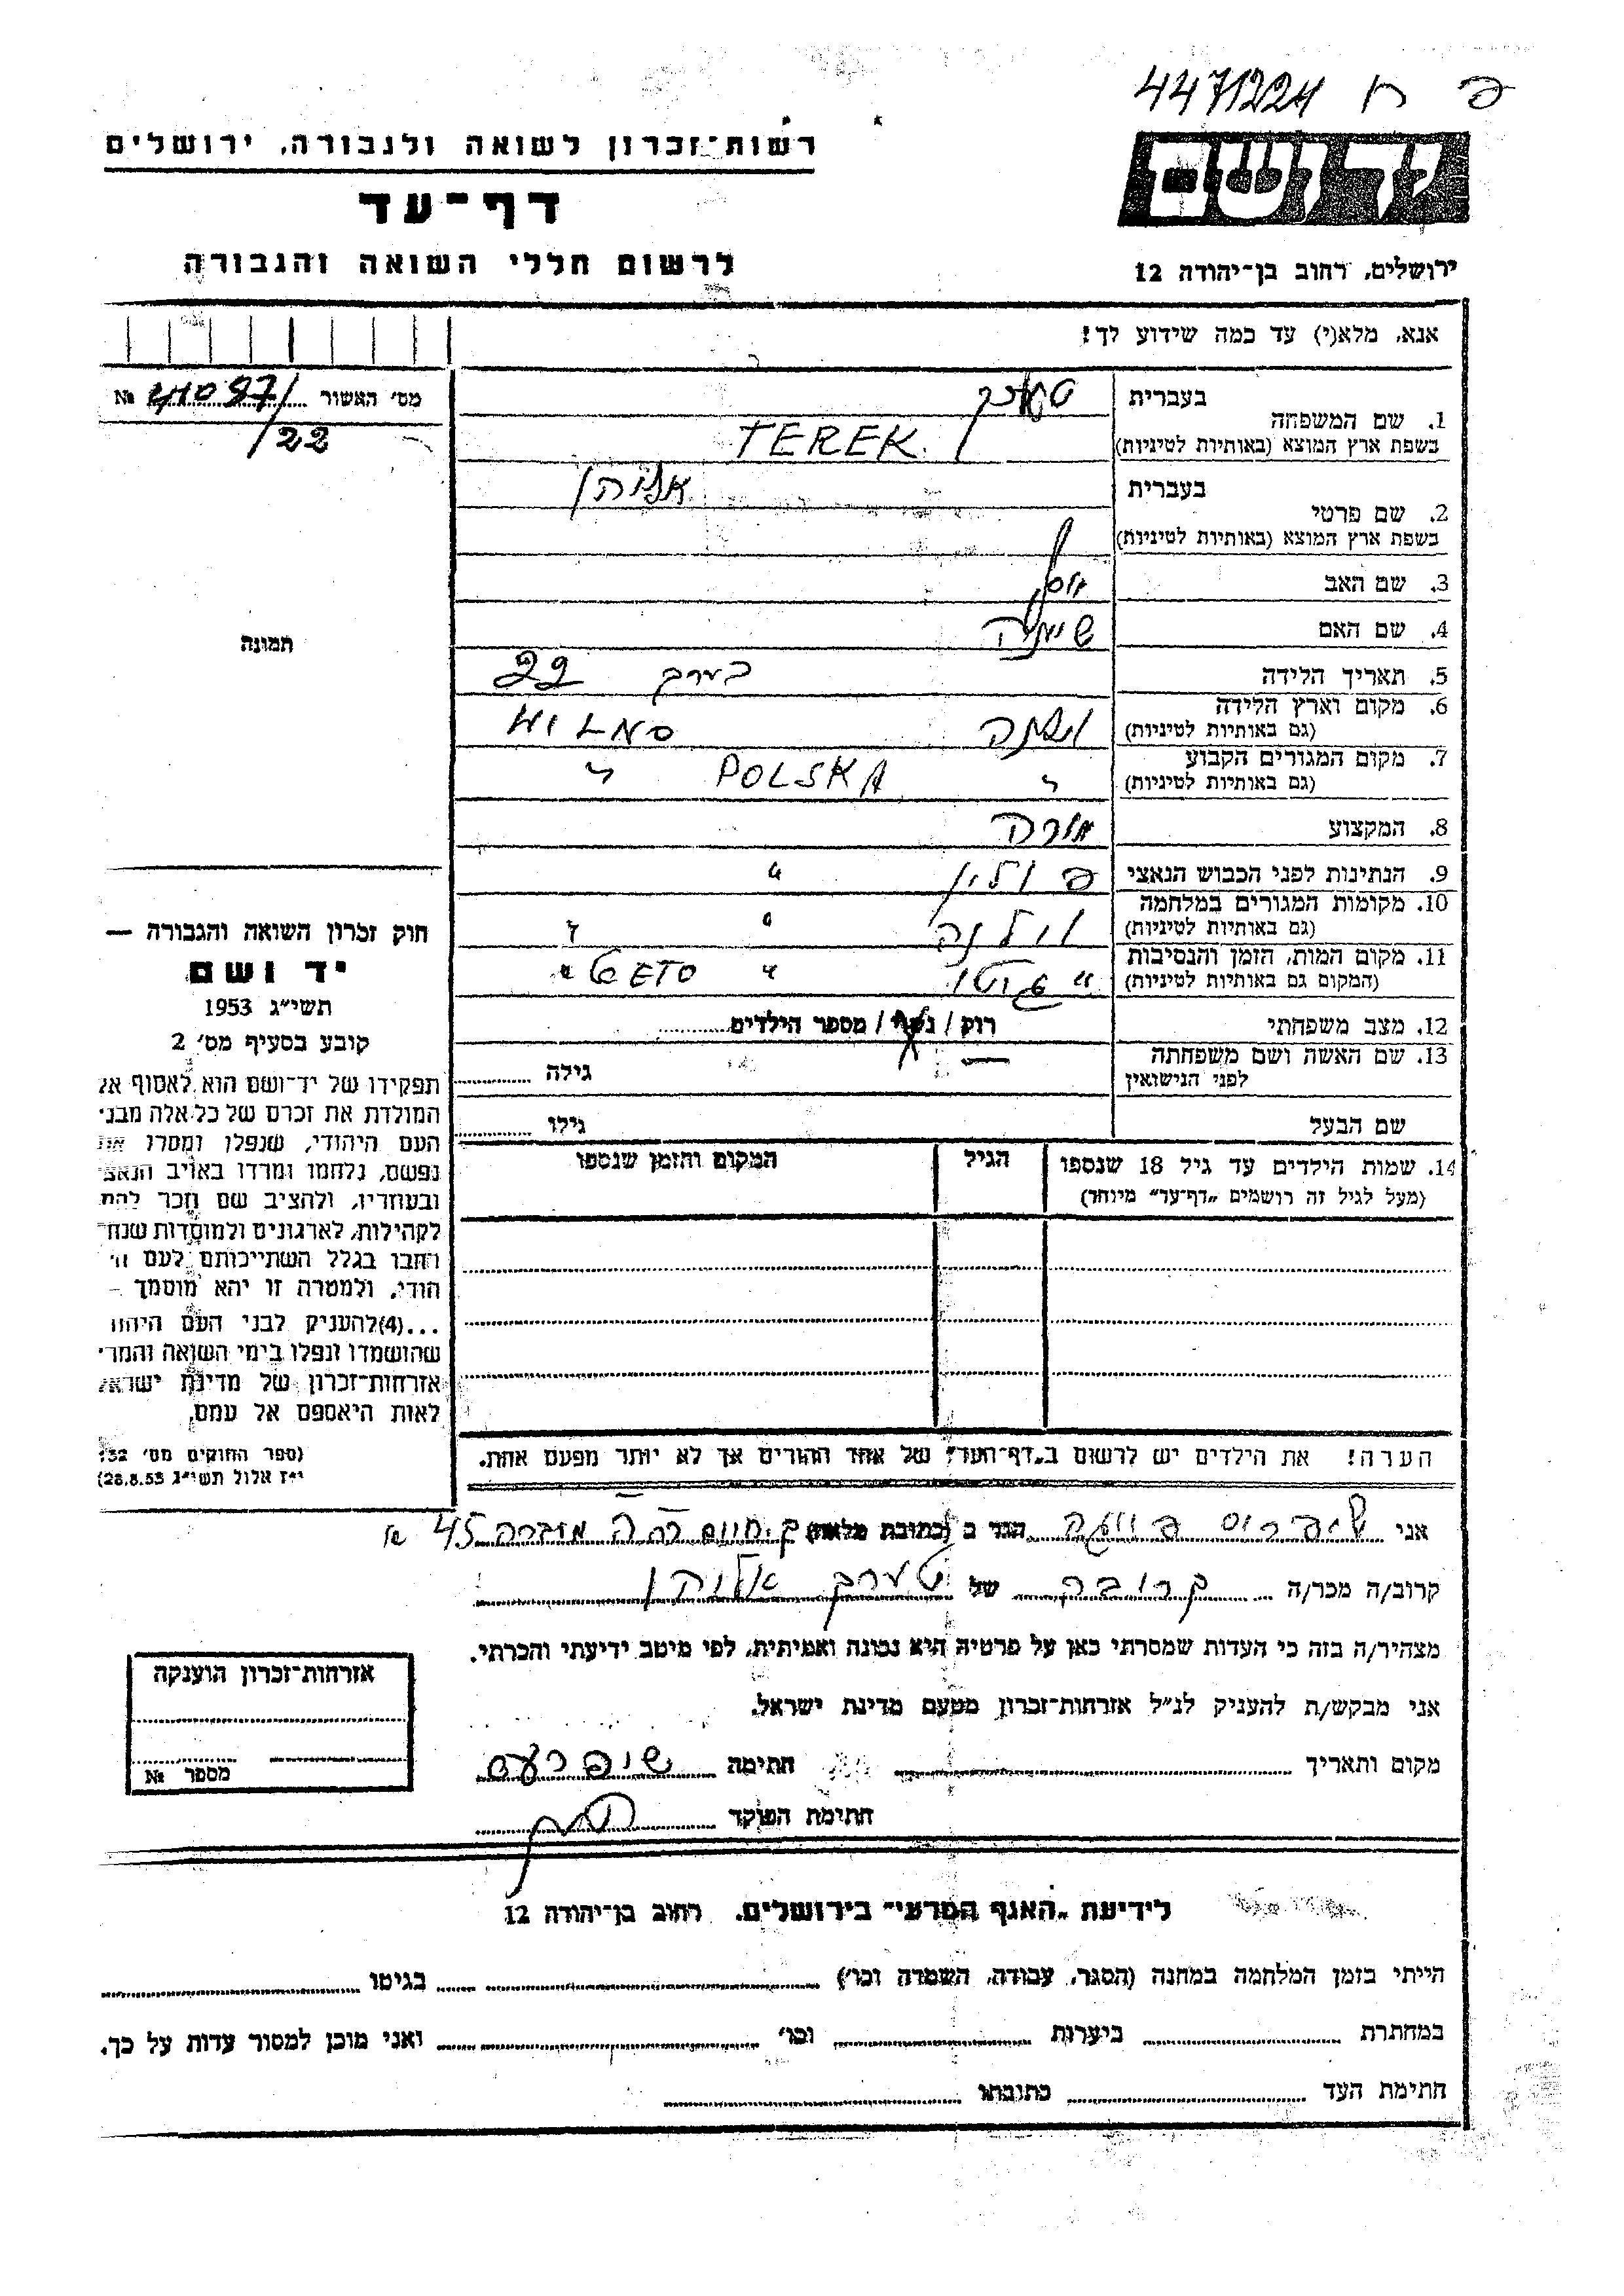 4471224 ח פ
רשות־זכרון לשואה ולגבורה, ירושלים
דף־עד
לרשום חללי השואה והגבורה
יד ושם
ירושלים, רחוב בן־יהודה 12
אנא, מלא(י) עד כמה שידוע לך!
מס׳ האשור 41097/ №
/22
תמונה
1. שם המשפחה
בעברית טערק
בשפת ארץ המוצא (באותיות לטיניות) TEREK
2. שם פרטי
בעברית
בשפת ארץ המוצא (באותיות לטיניות)
3. שם האב יוסף
4. שם האם
5. תאריך הלידה בערך 22
6. מקום וארץ הלידה
(גם באותיות לטיניות) וילנה WILNO
7. מקום המגורים הקבוע
(גם באותיות לטיניות) " POLSKA "
8. המקצוע מורה
9. הנתינות לפני הכבוש הנאצי פולין "
10. מקומות המגורים במלחמה
(גם באותיות לטיניות) וילנה "
11. מקום המות, הזמן והנסיבות
(המקום גם באותיות לטיניות) " גיטו "
12. מצב משפחתי רוק / נשוי / מספר הילדים
13. שם האשה ושם משפחתה
לפני הנישואין — גילה
שם הבעל גילו
14. שמות הילדים עד גיל 18 שנספו הגיל המקום והזמן שנספו
(מעל לגיל זה רושמים „דף־עד״ מיוחד)
הערה! את הילדים יש לרשום ב„דף־העד״ של אחד ההורים אך לא יותר מפעם אחת.
חוק זכרון השואה והגבורה —
יד ושם
תשי״ג 1953
קובע בסעיף מס׳ 2
תפקידו של יד־ושם הוא לאסוף אל
המולדת את זכרם של כל אלה מבני
העם היהודי, שנפלו ומסרו את
נפשם, נלחמו ומרדו באויב הנאצי
ובעוזריו, ולהציב שם וזכר להם,
לקהילות, לארגונים ולמוסדות שנח־
רבו בגלל השתייכותם לעם הי
הודי, ולמטרה זו יהא מוסמך –
...(4)להעניק לבני העם היהו
שהושמדו ונפלו בימי השואה והמרי
אזרחות־זכרון של מדינת ישראל
לאות היאספם אל עמם.
(ספר החוקים מס׳ 132
י״ז אלול תשי״ג 28.8.53)
אני הגר ב (כתובת מלאה) ק. חיים 45
קרוב/ה מכר/ה קרובה של טערק
מצהיר/ה בזה כי העדות שמסרתי כאן על פרטיה היא נכונה ואמיתית, לפי מיטב ידיעתי והכרתי.
אני מבקש/ת להעניק לנ״ל אזרחות־זכרון מטעם מדינת ישראל.
מקום ותאריך חתימה
חתימת הפוקד
אזרחות־זכרון הוענקה
מספר №
לידיעת „האגף המדעי״ בירושלים, רחוב בן־יהודה 12
הייתי בזמן המלחמה במחנה (הסגר, עבודה, השמדה וכו׳) בגיטו
במחתרת ביערות וכו׳ ואני מוכן למסור עדות על כך.
חתימת העד כתובתו